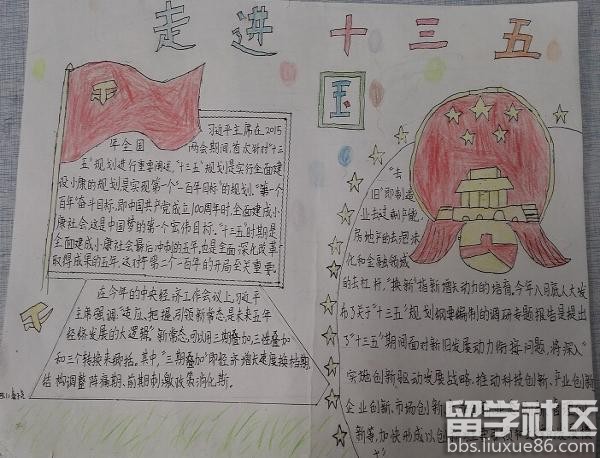 走进十三五
国
习近平主席在2015
年全国两会期间,首次对"十三
五"规划进行重要阐述,"十三五"规划是实行全面建
设小康的规划是实现第个"一百年目标"的规划。"第一个
百年"奋斗目标,即中国共产党成立100周年时,全面建成小
康社会,这是中国梦的第一个宏伟目标。"十三五"时期是
全面建成小康社会最后冲刺的五年,也是全面深化改革
取得成果的五年,这对于第二个一百年的开局至关重要。
在今年的中央经济工作会议上,习近平
主席强调,"适应、把握、引领新常态是未来五年
经济发展的大逻辑"新常态,可以用三期叠加,三性叠加
和三个转换来概括。其中,"三期叠加"即经济增长速度换档期
结构调整阵痛期、前期刺激政策消化期。
"去
旧"即制造
业去过剩产能,
房地产的去泡沫
化和金融领域
的去杠杆,"换新"指新增长动力的培育,今年八月底人大发
布了关于"十三五"规划纲要编制的调研专题报告是提出
了"十三五"期间面对新旧发展动力衔接问题,将深入
实施创新驱动发展战略,推动科技创新、产业创新
企业创新、市场创新
新等,加快形成以创
留学社区
bbs.liuxue86.com